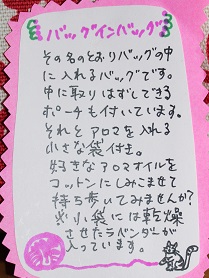 バッグインバッグ
その名のとおりバッグの中
に入れるバッグです。
中に取りはずしできる
ポーチも付いています。
それとアロマを入れる
小さな袋付き。
好きなアロマオイルを
コットンにしみこませて
持ち歩いてみませんか?
小袋には乾燥
させたラベンダーが
入っています。